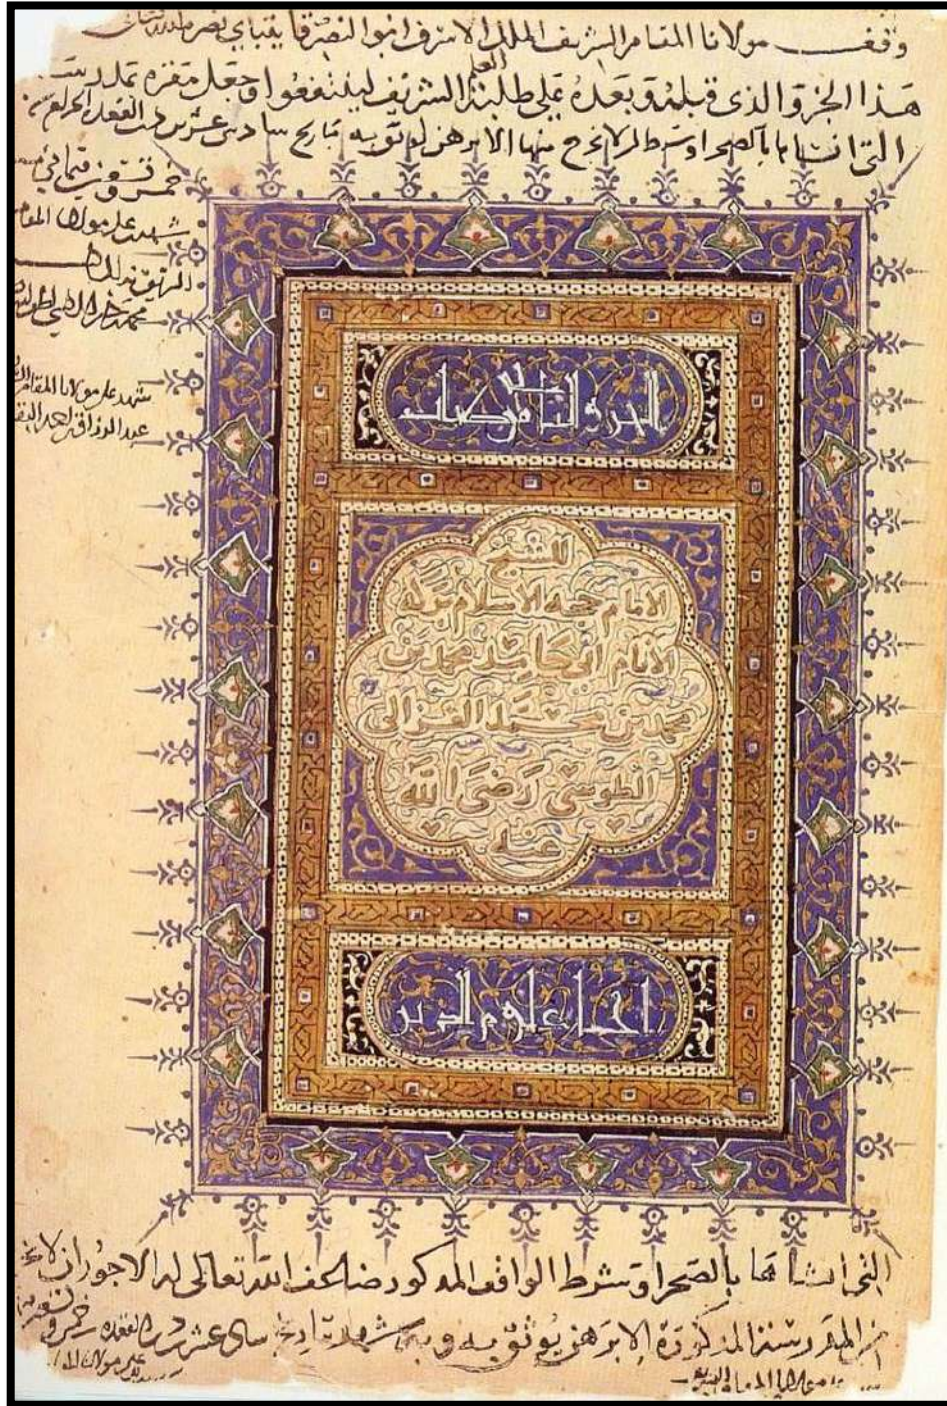 وقف مولانا المقام الشريف الملك الاشرف ابو النصر قايتباي نصره
العلم
هذا الجزو والذى قبله وبعده على طلبة الشريف لينتفعوا وجعل مقره بمدرسته
التى انشاها بالصحرا وشرط ان لا يخرج منها الا برهن يوثق به بتاريخ سادس عشرين القعدة الحرام سنة
خمس وتسعين وثمانمائة
شهد على مولانا المقام
الشريف بذلك
محمد
شهد على مولانا المقام
عبد الرزاق احمد
الجزء الثامن من كتاب
للشيخ
الامام حجة الاسلام بركة
الانام ابى حامد محمد بن
محمد بن محمد الغزالى
الطوسى رضى الله
عنه
احياء علوم الدين
التى انشاها بالصحرا وشرط الواقف المذكور ضاعف الله تعالى له الاجور ان لا يخرج
من المدرسة المذكورة الا برهن يوثق به وبه شهد بتاريخ سادس عشرين القعدة خمس وتسعين
على مولانا المقام